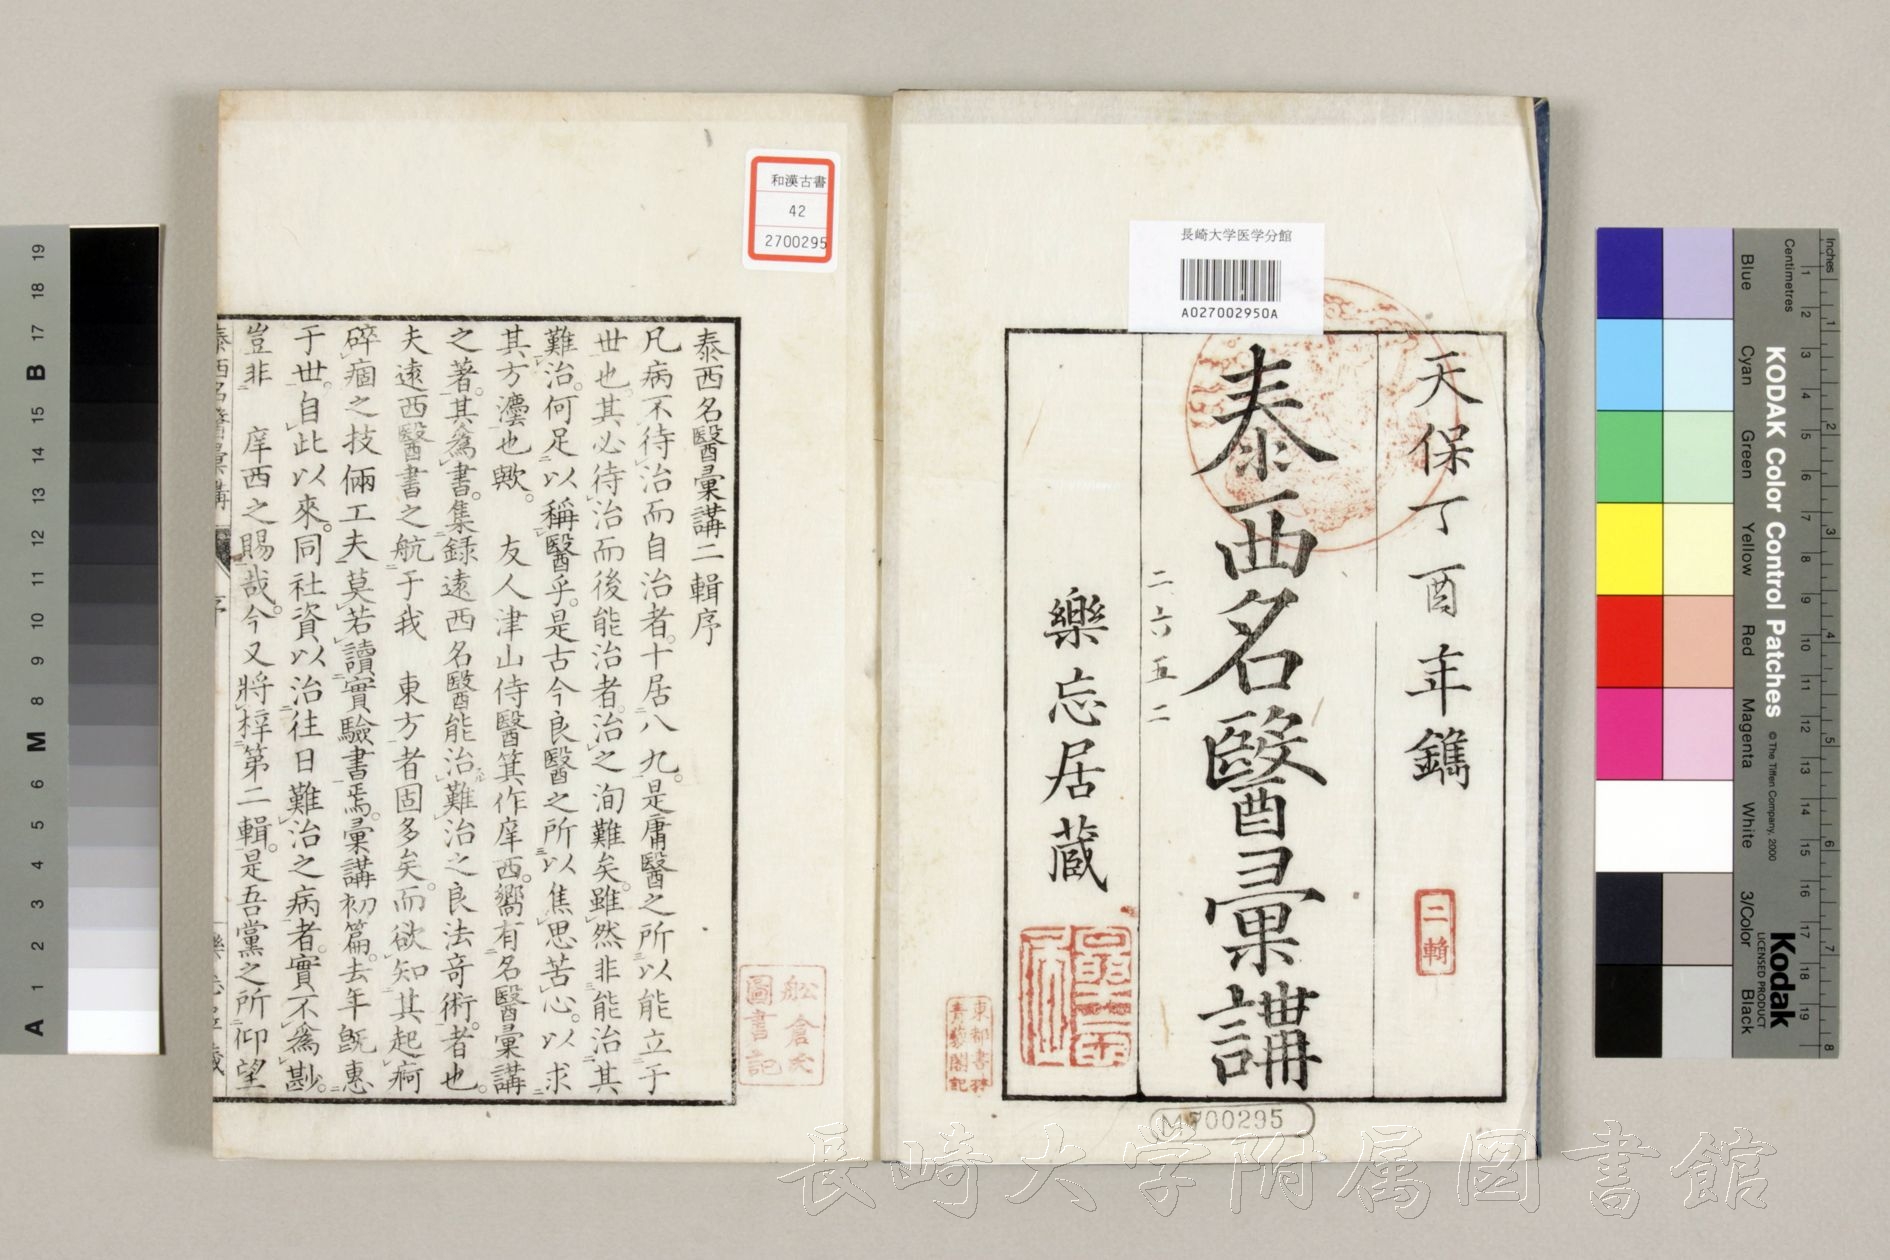 天保丁酉年鐫
二輯
泰西名醫彙講
二六五二
樂忘居蔵
東都書林
青藜閣記
長崎大学医学分館
A027002950A
M700295
和漢古書
42
2700295
泰西名醫彙講二輯序
凡病不待治而自治者。十居八九。是庸醫之所以能立于
世也。其必待治而後能治者。治之洵難矣。雖然非能治其
難治。何足以稱醫乎。是古今良醫之所以焦思苦心。以求
其方灋也歟。 友人津山侍醫箕作庠西。嚮有名醫彙講
之著。其爲書。集録遠西名醫能治難治之良法竒術者也。
夫遠西醫書之航于我 東方者固多矣。而欲知其起痾
碎痼之技倆工夫莫若讀實驗書焉。彙講初篇。去年既惠
于世。自此以來。同社資以治往日難治之病者。實不爲尠。
豈非 庠西之賜哉。今又將梓第二輯。是吾黨之所仰望
泰西名醫彙講
序
樂忘居蔵
舩倉氏
圖書記
長崎大学附属図書館
KODAK Color Control Patches
© The Tiffen Company, 2000
Kodak
LICENSED PRODUCT
Inches
Centimetres
Blue
Cyan
Green
Yellow
Red
Magenta
White
3/Color
Black
1 2 3 4 5 6 7 8
1 2 3 4 5 6 7 8 9 10 11 12 13 14 15 16 17 18 19
A 1 2 3 4 5 6 M 8 9 10 11 12 13 14 15 B 17 18 19